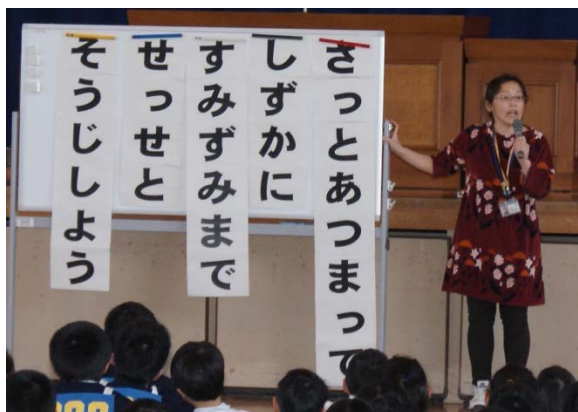 さっとあつまって
しずかに
すみずみまで
せっせと
そうじしよう